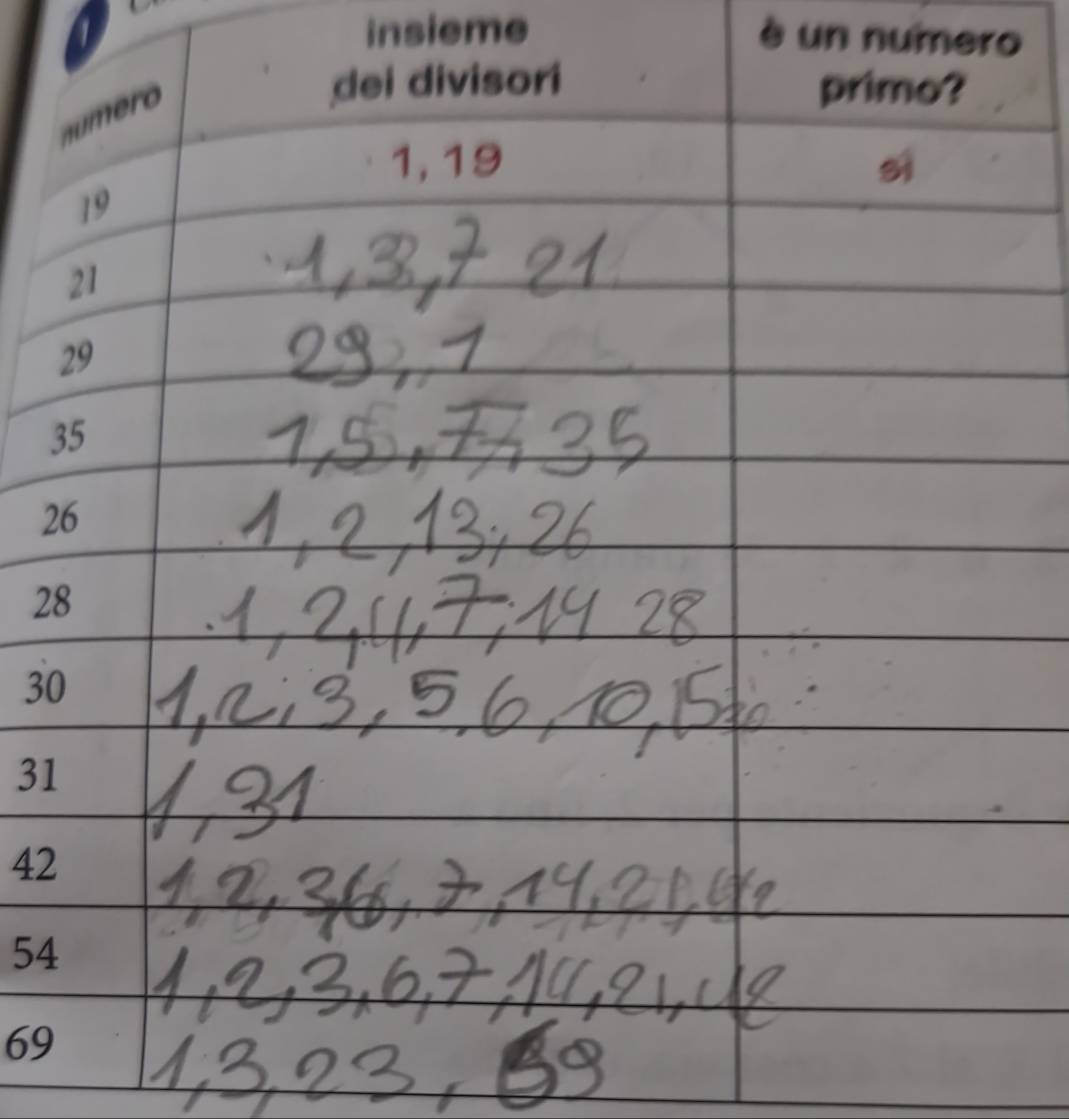 1
numero insieme dei divisori è un numero primo?
19 1, 19 sì
21 1, 3, 7 21
29 29, 1
35 1, 5, 7, 35
26 1, 2, 13, 26
28 1, 2, 4, 7, 14 28
30 1, 2, 3, 5, 6, 10, 15 30
31 1, 31
42 1, 2, 3, 6, 7, 14, 21, 42
54 1, 2, 3, 6, 7, 14, 21, 42
69 1, 3, 23, 69